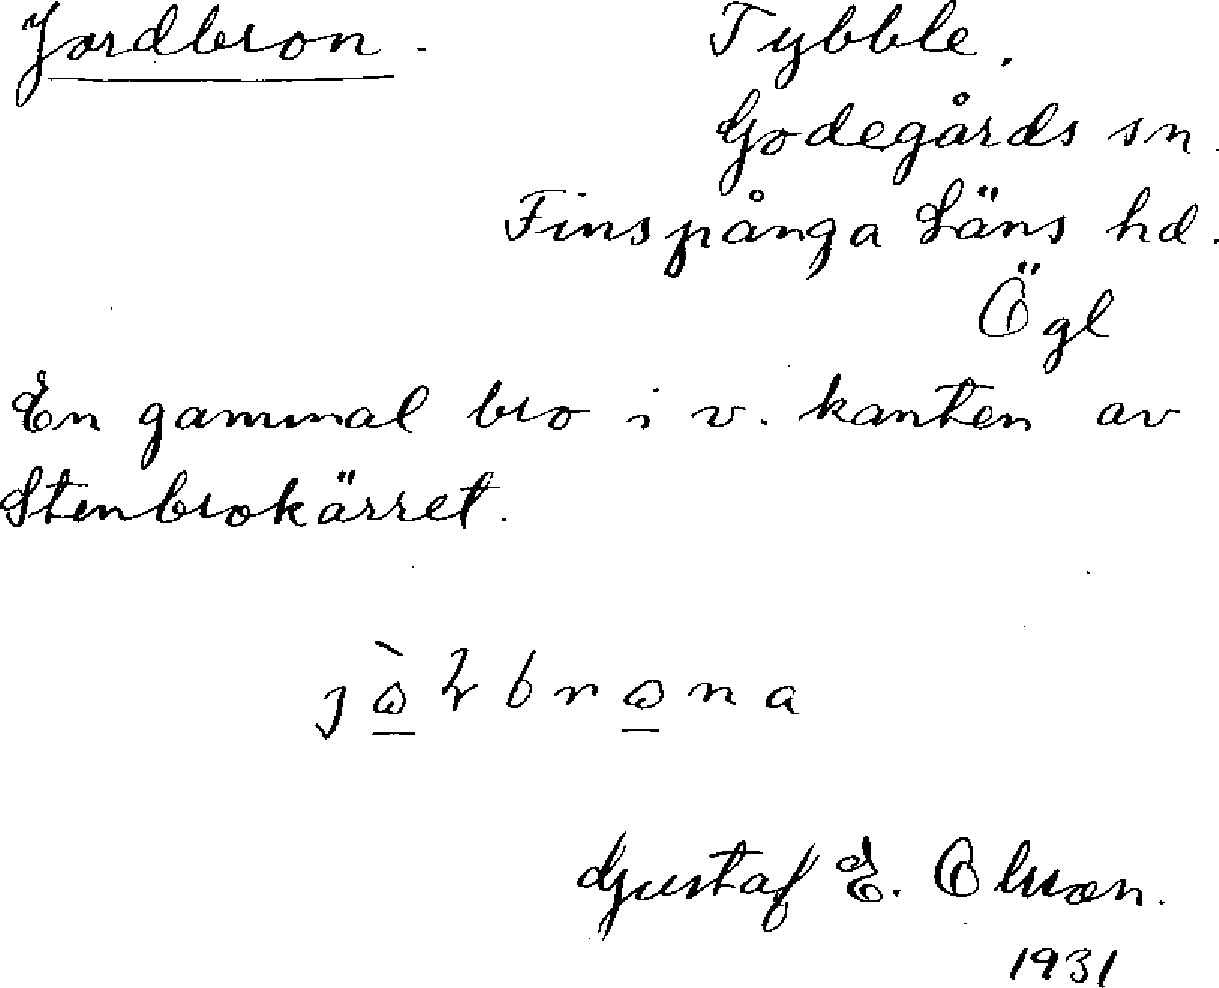 Jordbron. Tybble.
Godegårds sn.
Finspånga Läns hd.
Ögl
En gammal bro i v. kanten av
Stenbrokärret.
Gustaf E. Olsson.
1931